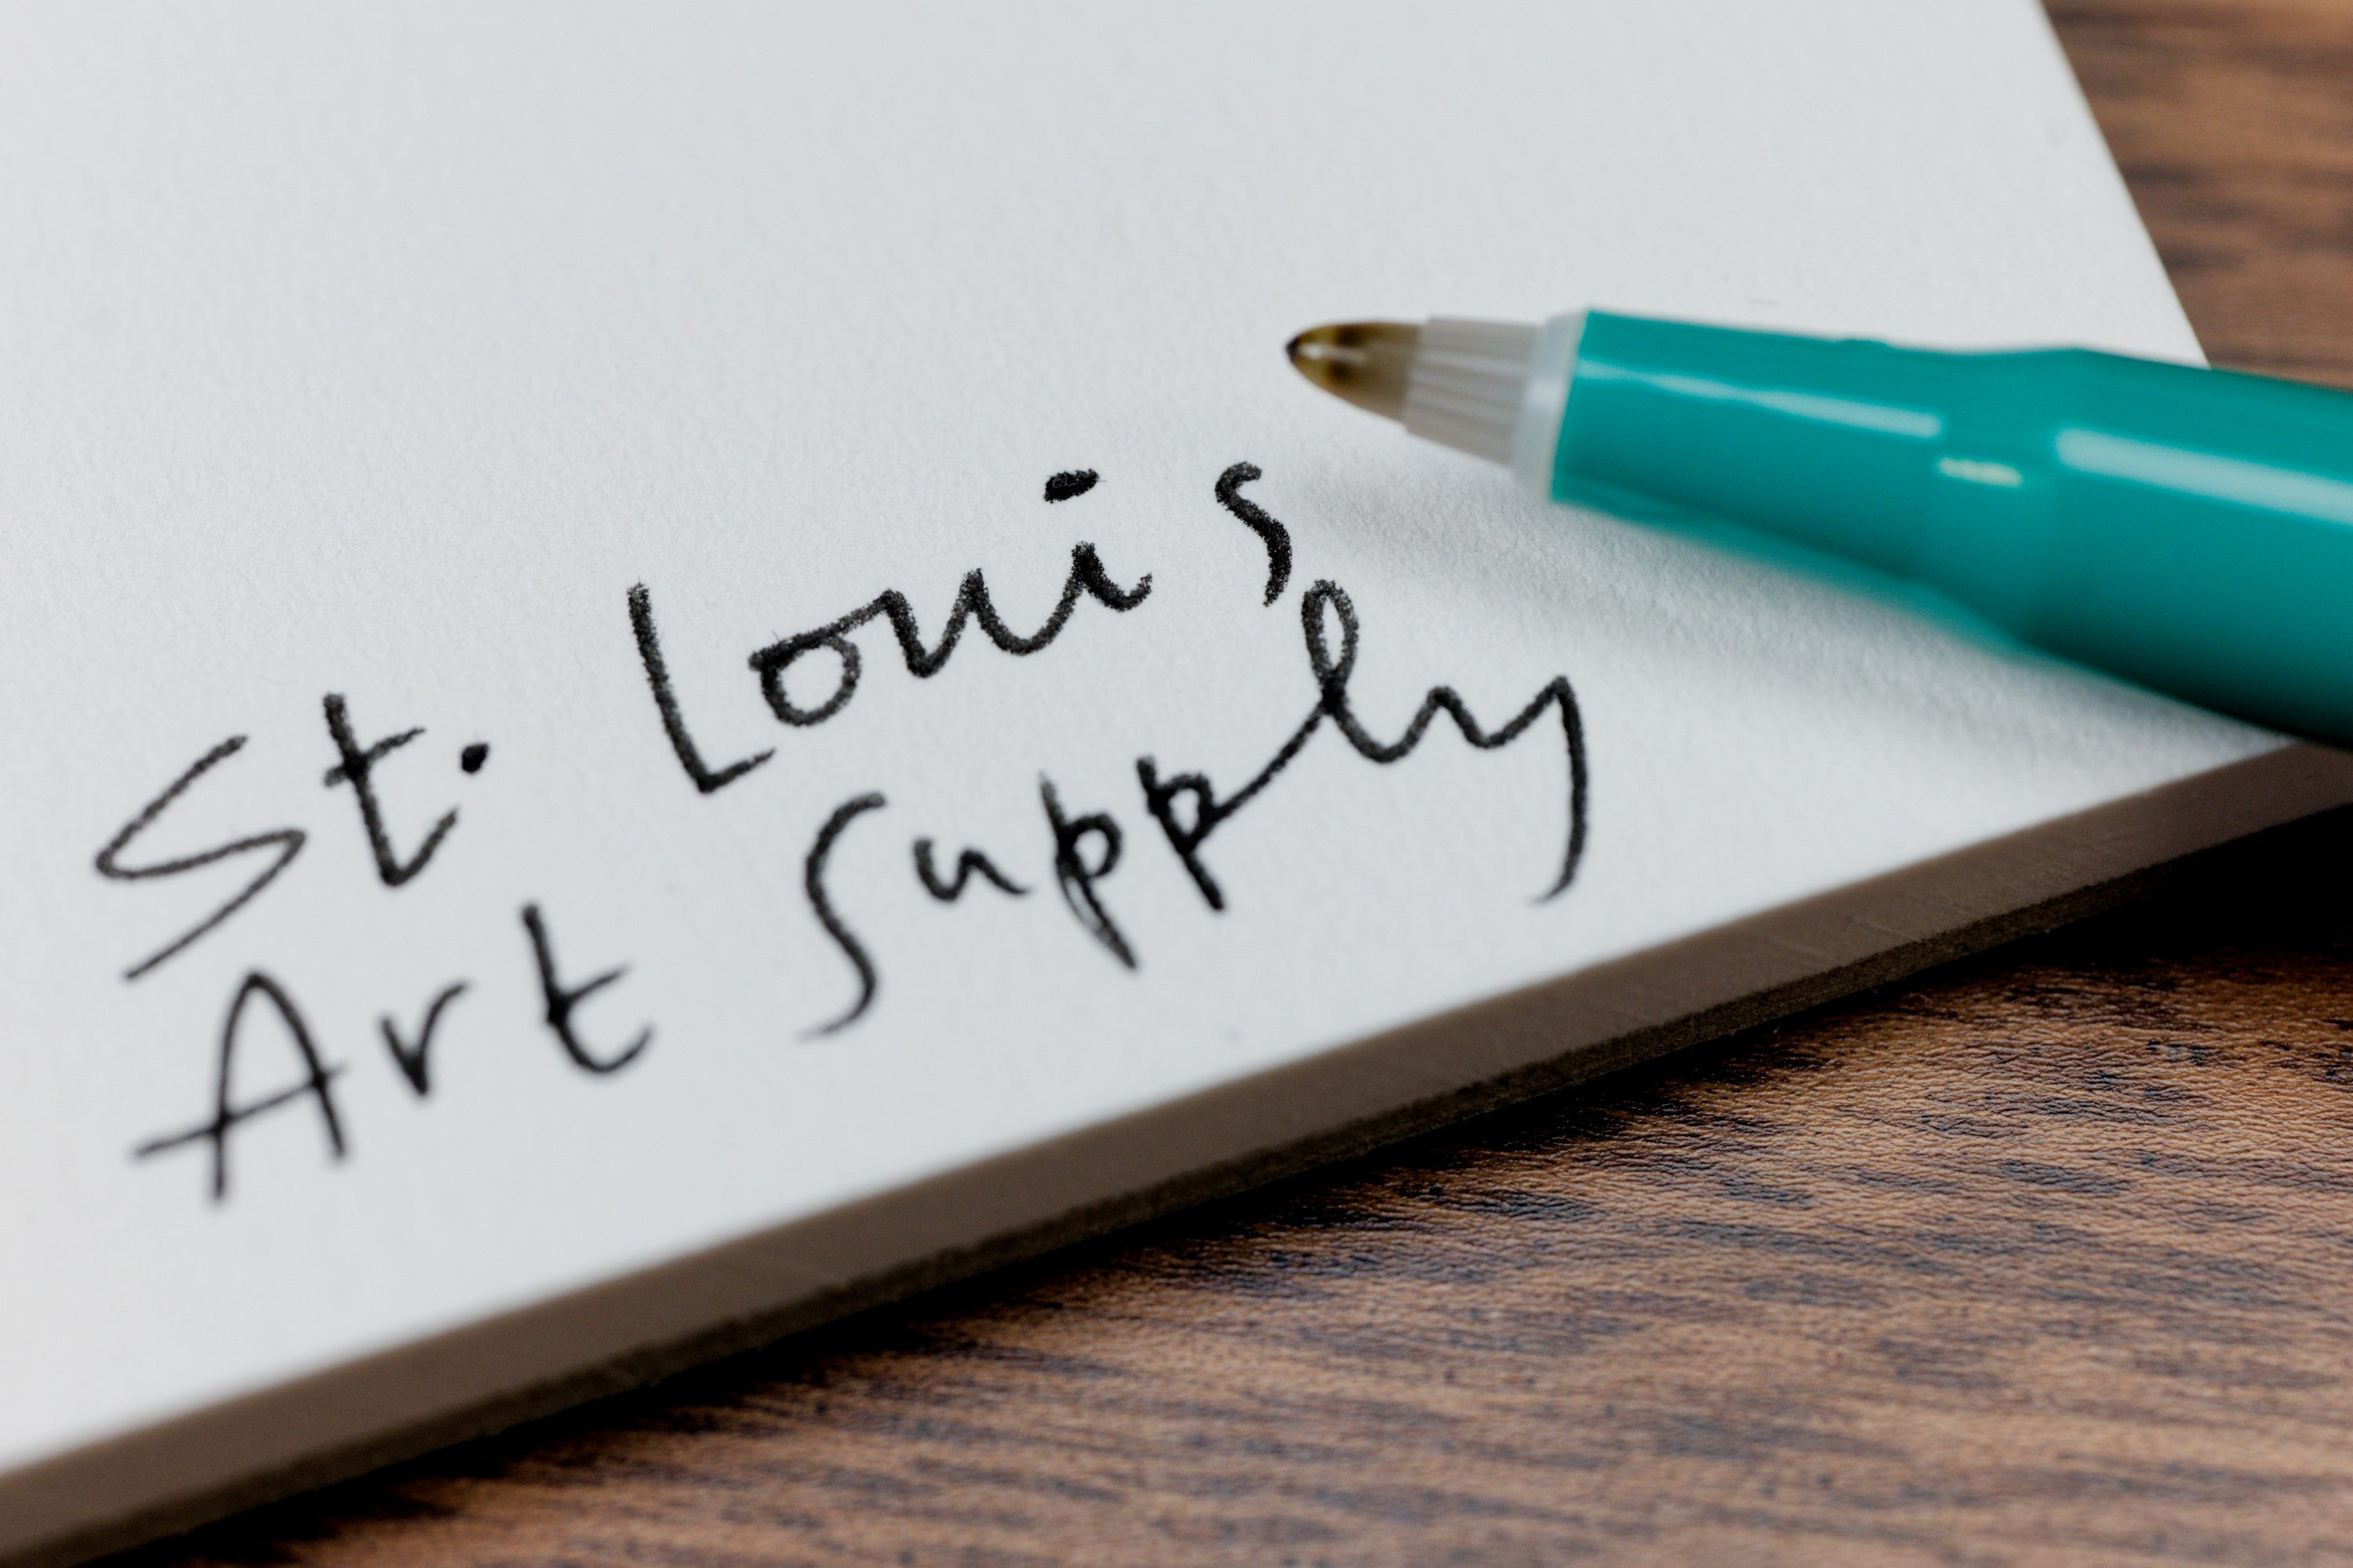 St. Louis
Art Supply